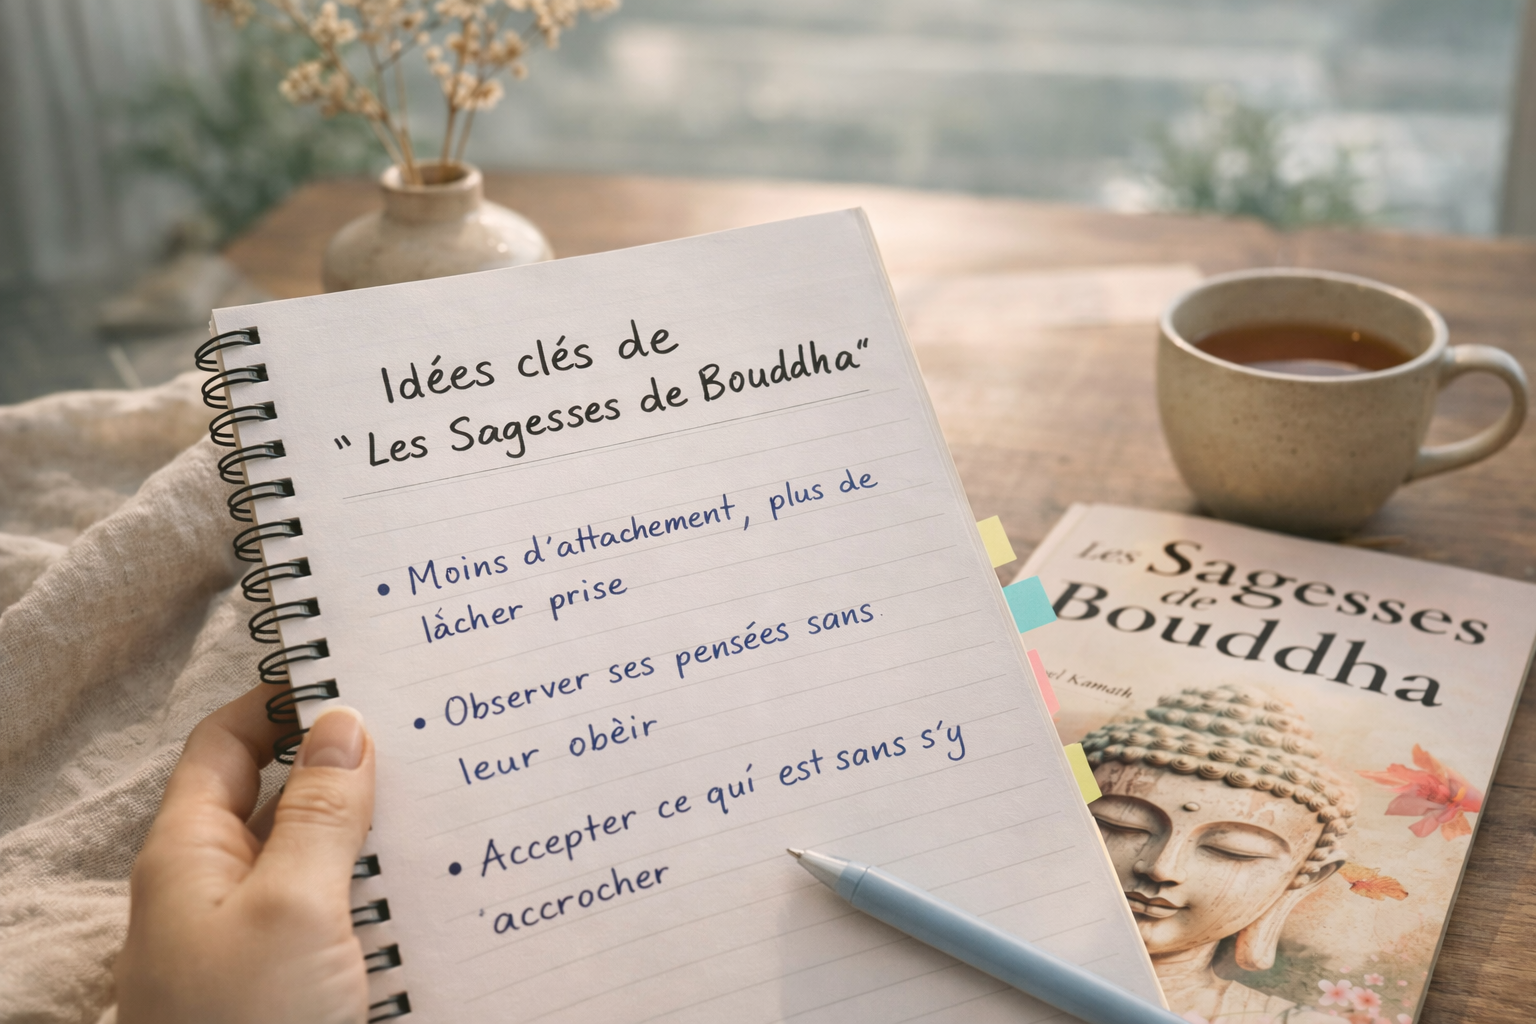 Idées clés de
"Les Sagesses de Bouddha"
• Moins d'attachement, plus de
lâcher prise
• Observer ses pensées sans
leur obèir
• Accepter ce quí est sans s'y
'accrocher
Les Sagesses
de
Bouddha
Kamath